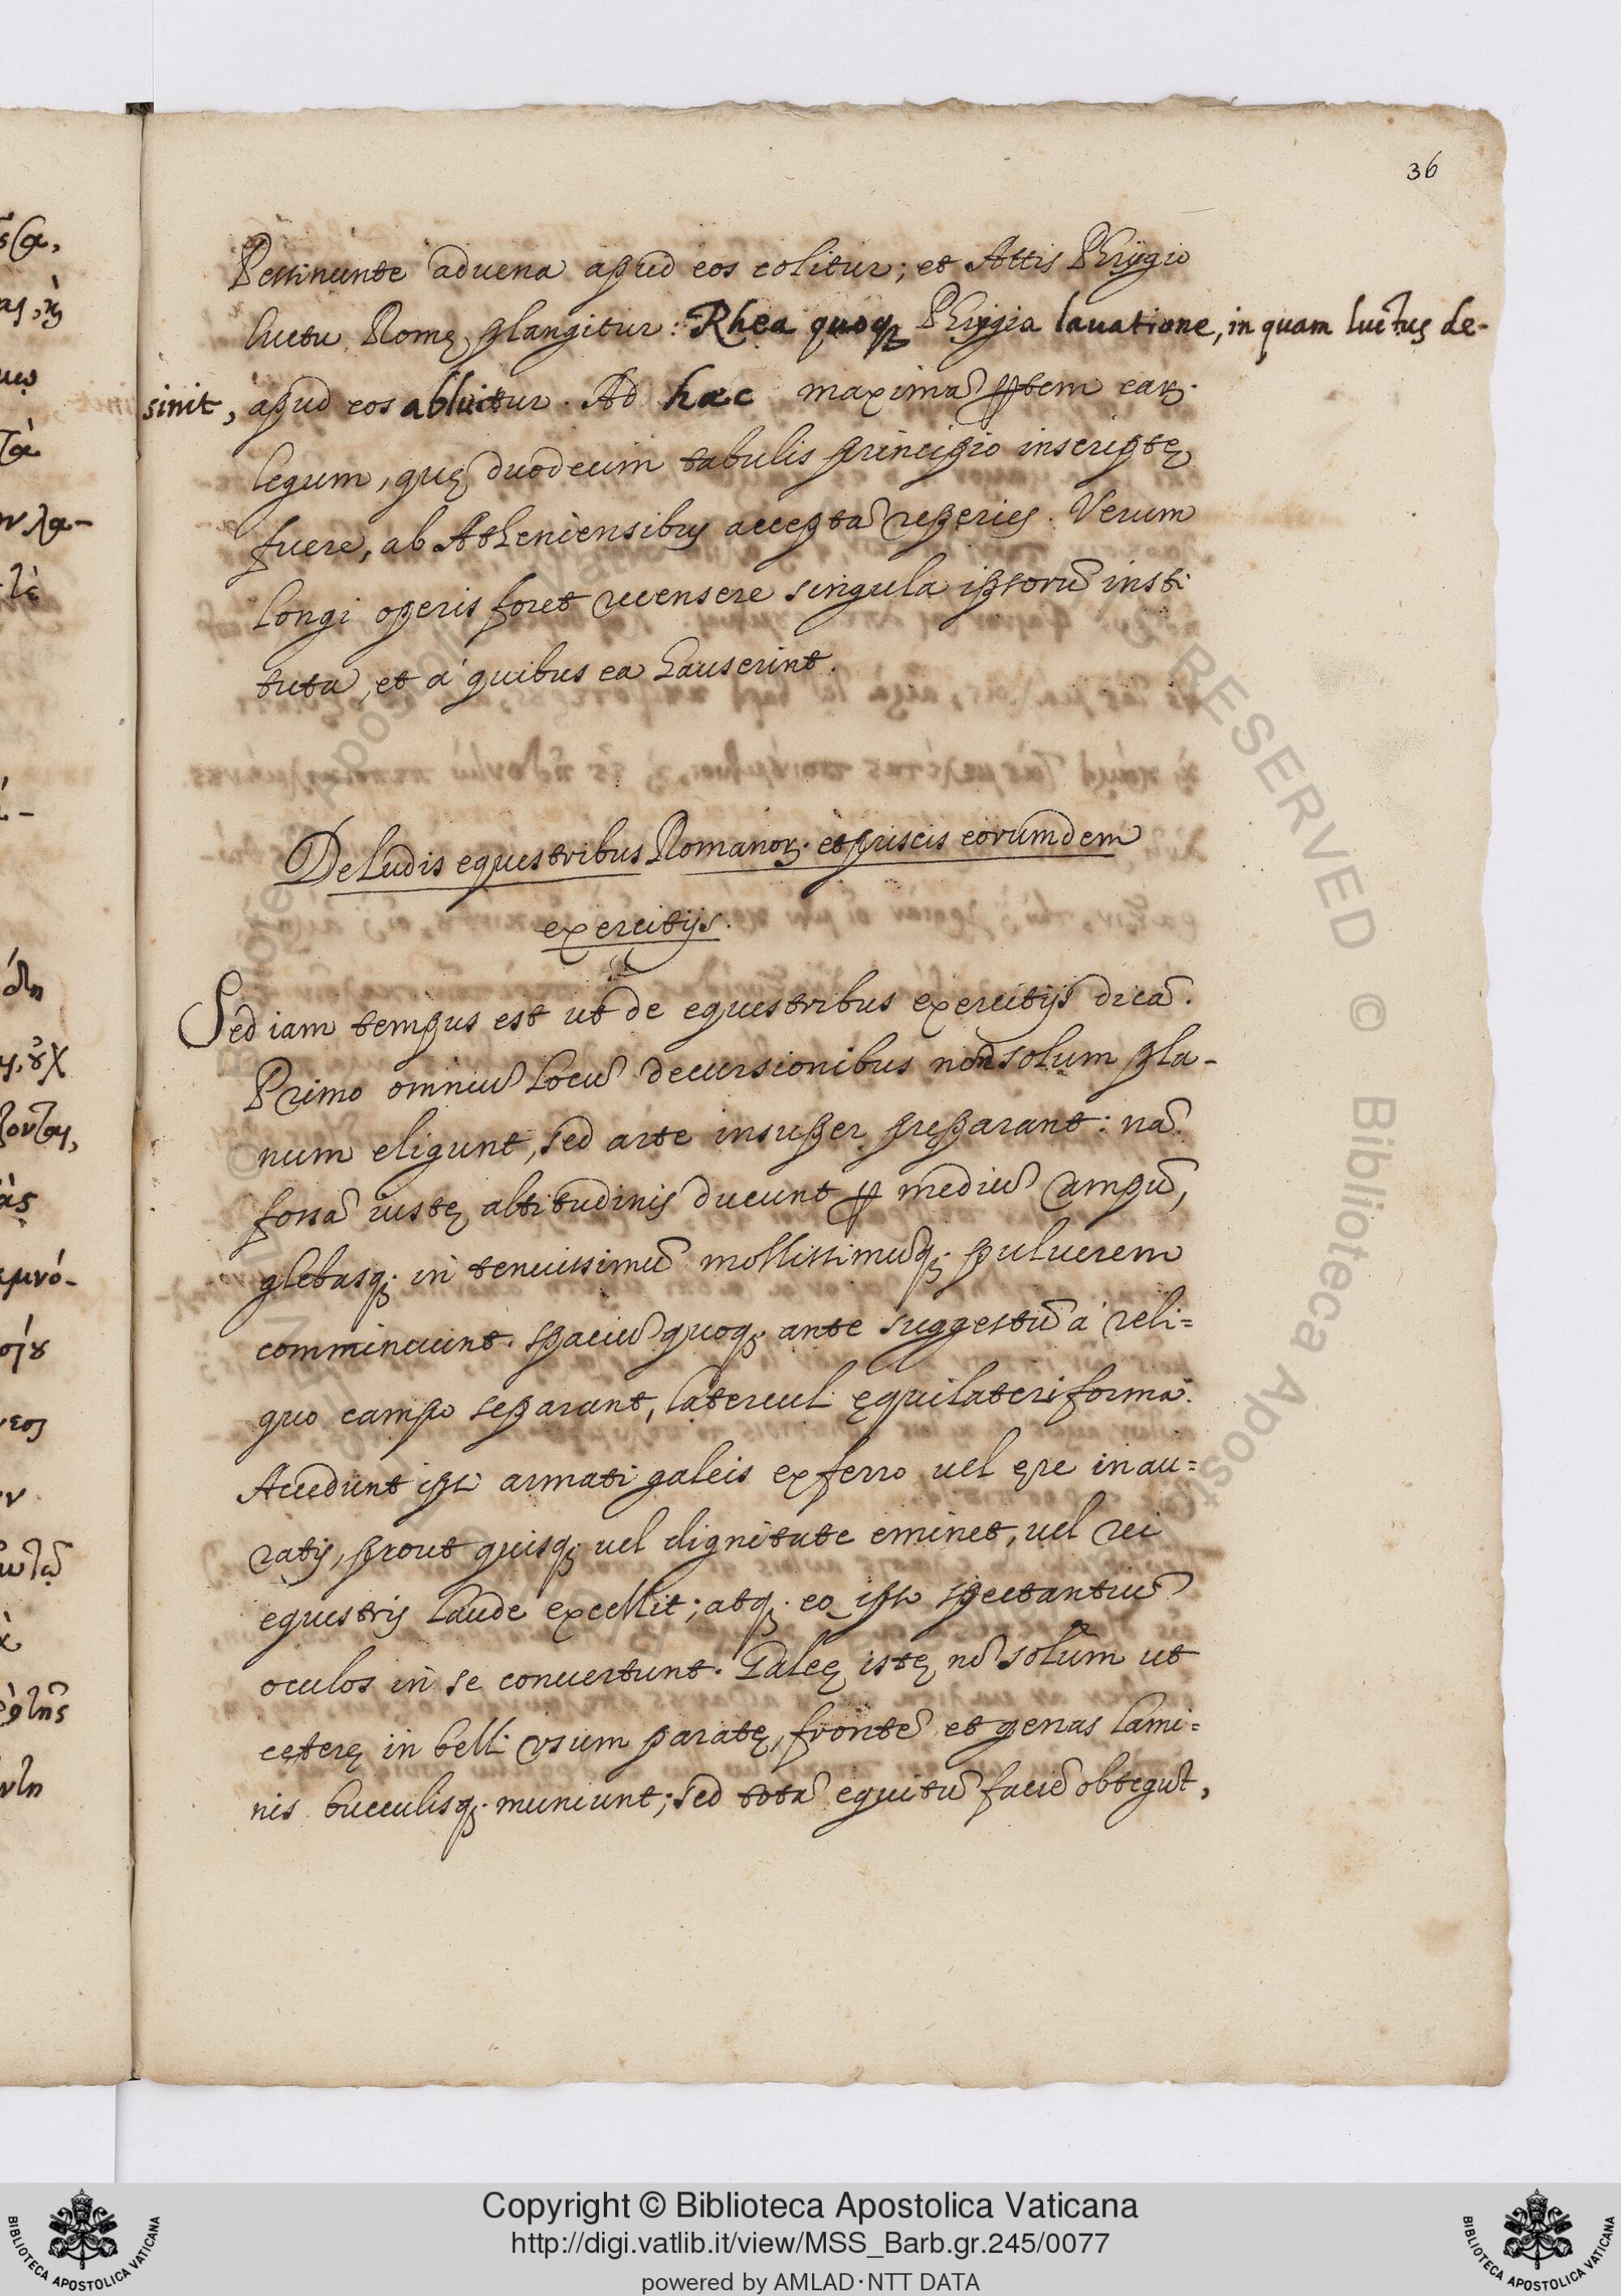 36
Pessinunte aduena apud eos colitur; et Attis Phrygio
luctu Romę plangitur: Rhea quoqꝫ Phrygia lauatione, in quam luctus de-
sinit, apud eos abluitur. Ad hæc maximã ꝑtem eaꝝ
legum, quę duodecim tabulis principio inscriptę
fuere, ab Atheniensibus acceptã reperies. Verum
longi operis foret recensere singula ipsorũ insti
tuta, et à quibus ea hauserint.
De Ludis equestribus Romanoꝝ et priscis eorumdem
exercitijs.
Sed iam tempus est ut de equestribus exercitijs dicã.
Primo omniũ locũ decursionibus non solum pla-
num eligunt, sed arte insuper pręparant: nã
fossã iustę altitudinis ducunt ꝑ mediũ campũ,
glebasqꝫ in tenuissimũ mollissimũqꝫ puluerem
comminuunt. spaciũ quoqꝫ ante suggestũ à reli=
quo campo separant, laterculi ęquilateri forma.
Accedunt ipsi armati galeis ex ferro uel ęre inau=
ratis, prout quisqꝫ uel dignitate eminet, uel rei
equestris laude excellit; atqꝫ eo ipso spectantiũ
oculos in se conuertunt. Galeę istę nõ solum ut
cęterę in belli usum paratę, frontẽ et genas lami=
nis bucculisqꝫ muniunt; sed totã equitũ faciẽ obtegũt,
ν λα-
μνό-
Copyright © Biblioteca Apostolica Vaticana
http://digi.vatlib.it/view/MSS_Barb.gr.245/0077
powered by AMLAD·NTT DATA
BIBLIOTECA APOSTOLICA VATICANA
BIBLIOTECA APOSTOLICA VATICANA